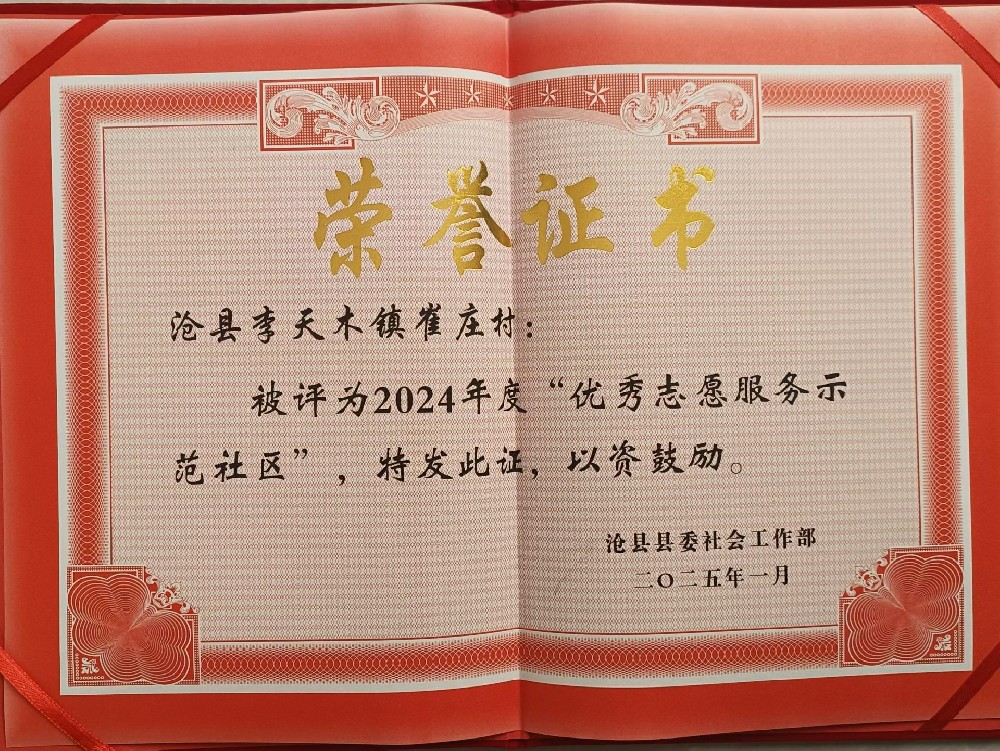 荣誉证书
沧县李天木镇崔庄村：
被评为2024年度“优秀志愿服务示
范社区”，特发此证，以资鼓励。
沧县县委社会工作部
二〇二五年一月